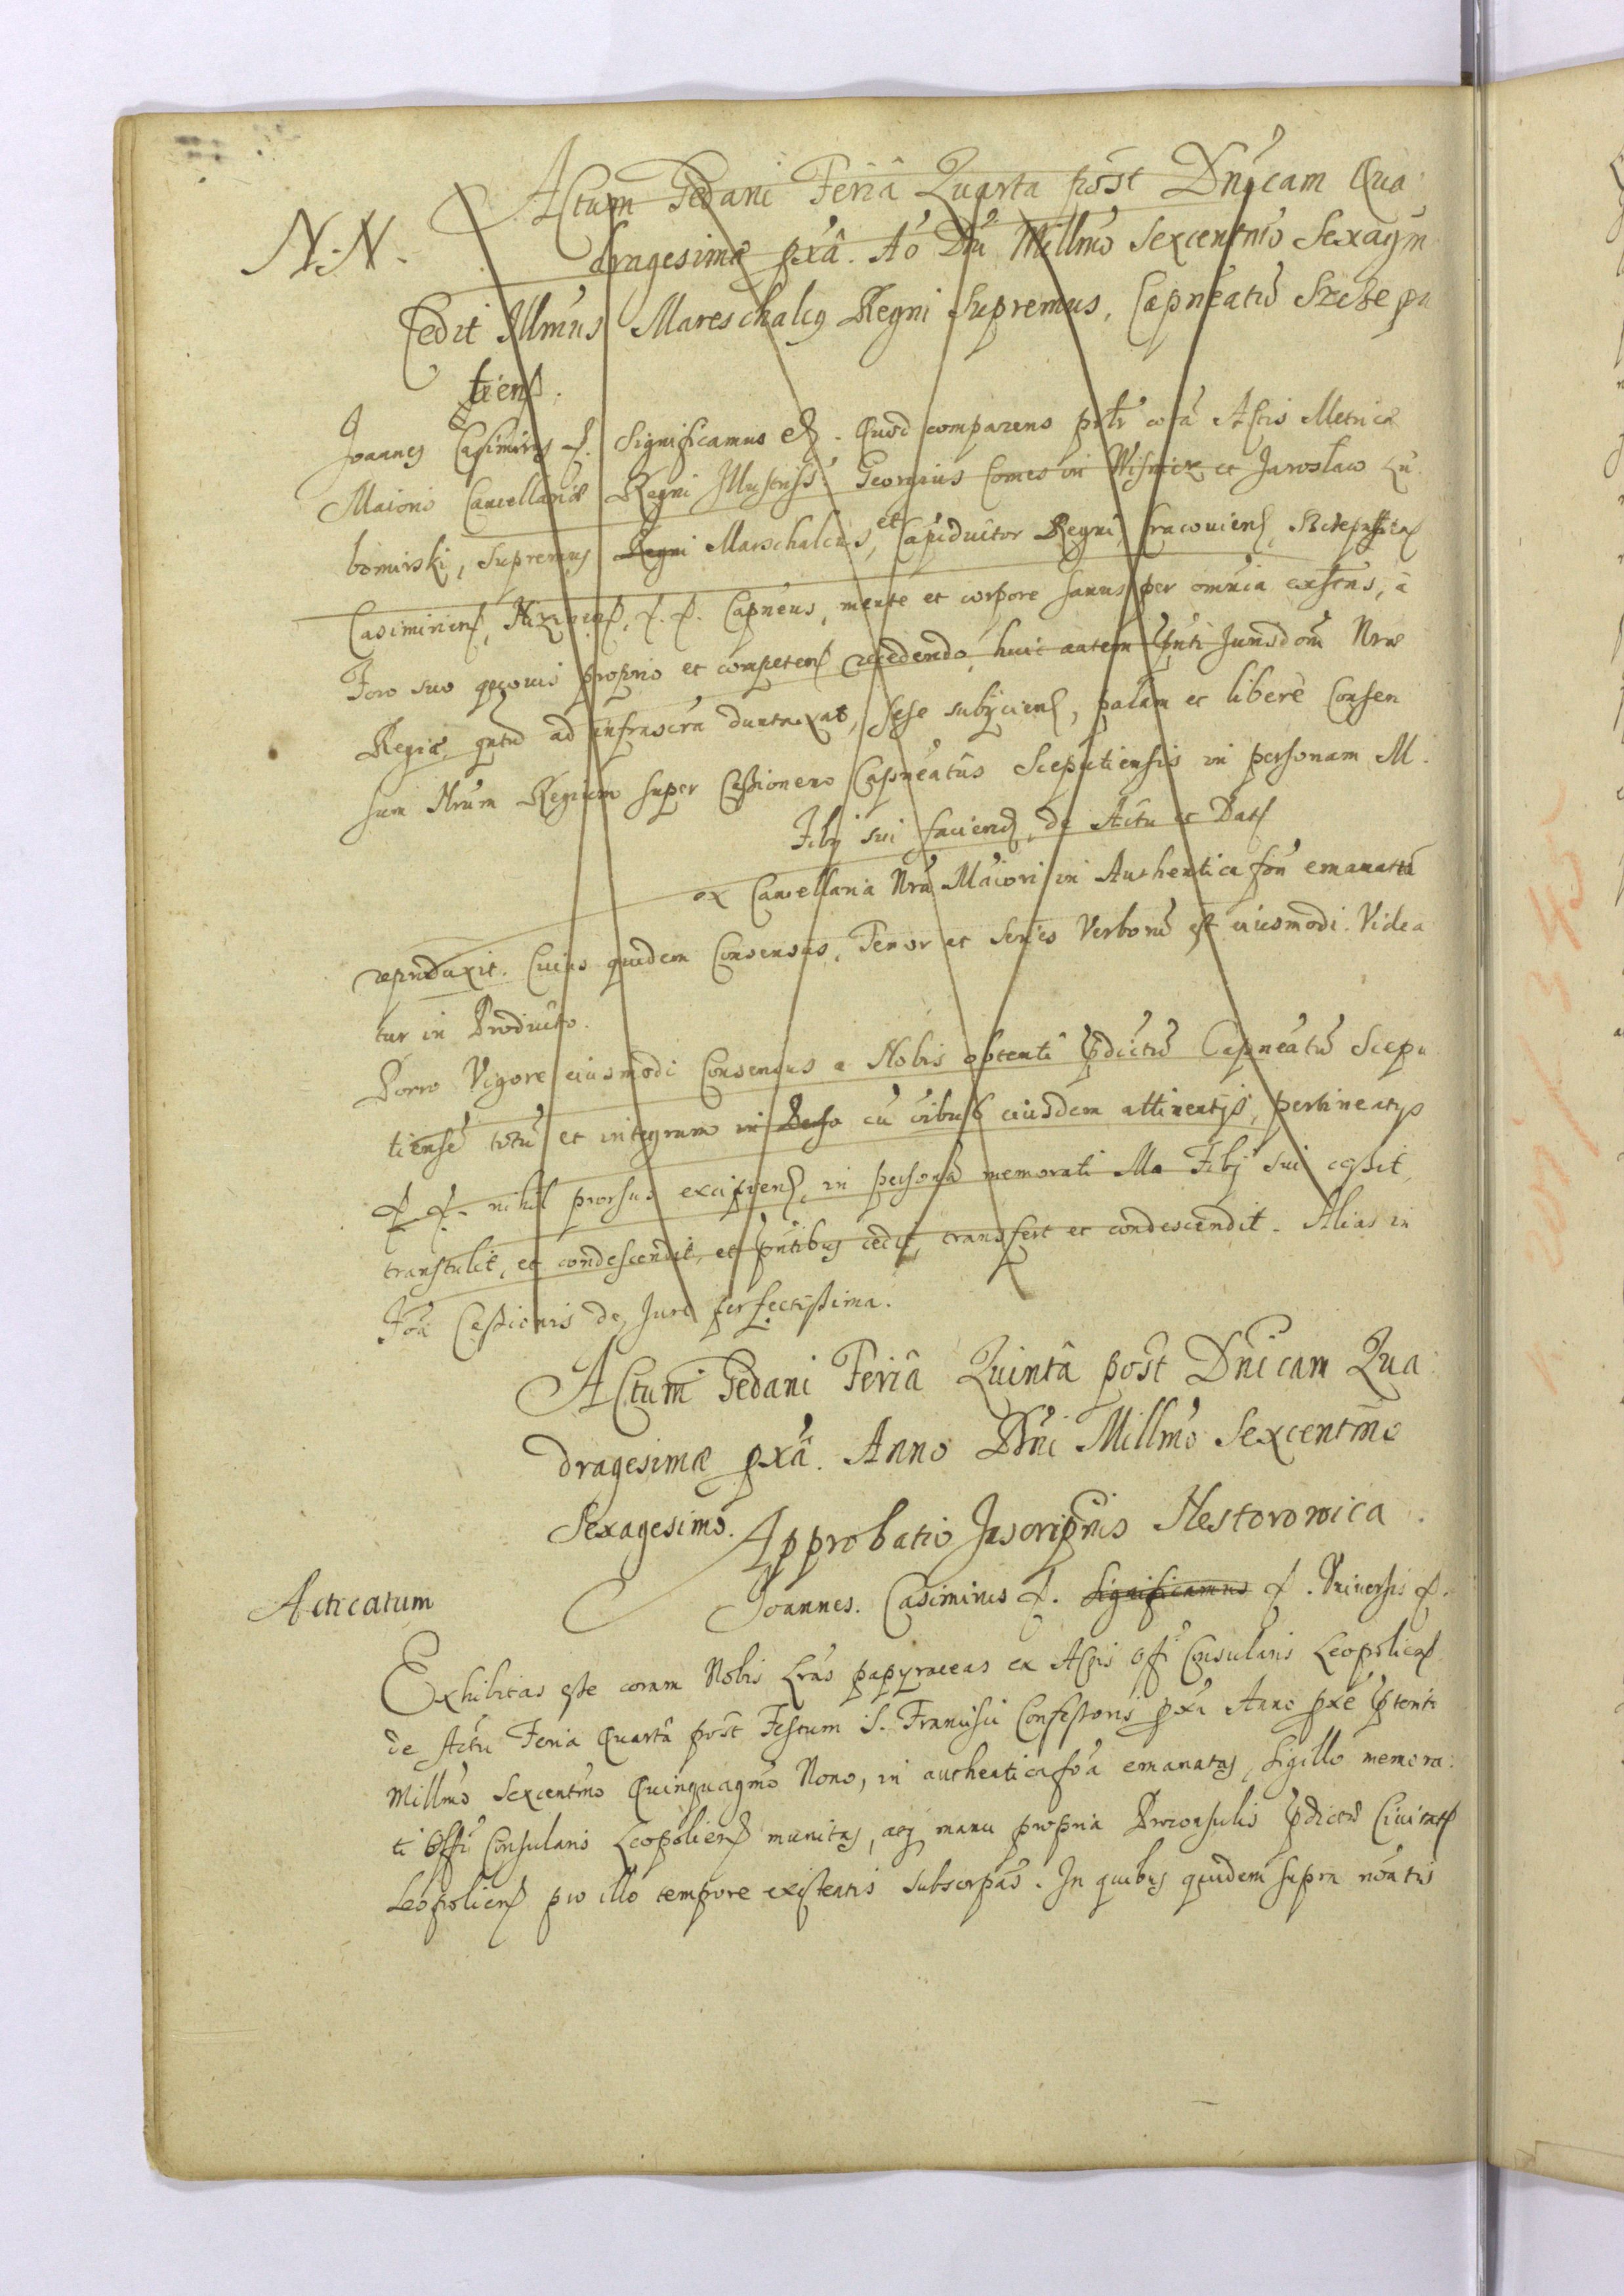 Actum Gedani Feriâ Quarta post Dnicam Qua
N. N.
dragesimæ pxâ. Aó Dni Millmo Sexcentmo Sexagm
Cedit Illmus Mareschalcus Regni Supremus, Capneatu Scepu
tiens.
Joannes Casimirus &. Significamus &. Quod comparens pnlr corā Actis Metricæ
Maioris Cancellariæ Regni Illustriss. Georgius Comes in Wisnicz et Jaroslaw Lu
bomirski, Supremus Regni Marschalcus, et Regni, Cracouiens,
Casimiriens, Nizinens, &. &. Capneus, mente et corpore sanus per omnia exstens, à
Foro suo qcovis proprio et competens recedendo, huic autem pnti Jurisdoni Nræ
Regiæ, qntu ad infrascra duntaxat, sese subijciens, palam et liberè Consen
sum Nrum Regium super Cessionem Capneatus Sceputiensis in personam M.
Filij sui faciend, de Actu et Dat
ex Cancellaria Nra Maiori in Authentica fon emanatū
reproduxit. Cuius quidem Consensus, Tenor et Series Verborū est eiusmodi. Videa
tur in Producto.
Porro Vigore eiusmodi Consensus a Nobis obtenti pdictū Capneatū Scepu
tiensē totū et integrum cū oibus eiusdem attinentijs, pertinentijs
&. &. nihil prorsus excipiens, in personā memorati M Filij sui cessit,
transtulit, et condescendit, et pntibus cedit, transfert et condescendit. Alias in
Foā Cessionis de Jure perfectissima.
Actum Gedani Feriâ Quintâ post Dnicam Qua
dragesimæ pxâ. Anno Dni Millmo Sexcentmo
Sexagesimo. Approbatio Inscripnis Nestorowica
Acticatum
Joannes. Casimirus &. Significamus &. Vniuersis &.
Exhibitas esse coram Nobis Lras papyraceas ex Actis Offi Consularis Leopolien
de Actu Feria Quartâ post Festum S. Francisci Confessoris pxa Anno pxe ptenti
Millmo Sexcentmo Quinquagmo Nono, in authentica foā emanatas, sigillo memora
ti Offi Consularis Leopoliens munitas, acq manu propria Proconsulis pdictæ Ciuitatis
Leopoliens pro illo tempore existentis subscrpas. In quibus quidem supra noatis